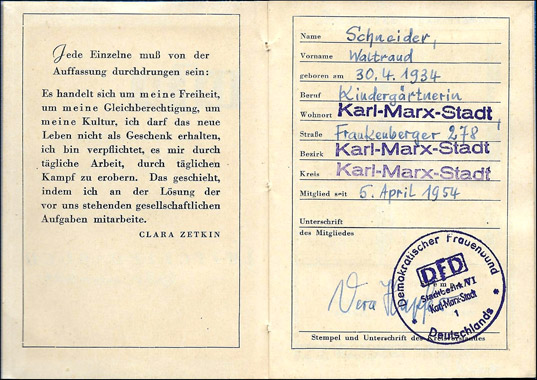 Jede Einzelne muß von der
Auffassung durchdrungen sein:
Es handelt sich um meine Freiheit,
um meine Gleichberechtigung, um
meine Kultur, ich darf das neue
Leben nicht als Geschenk erhalten,
ich bin verpflichtet, es mir durch
tägliche Arbeit, durch täglichen
Kampf zu erobern. Das geschieht,
indem ich an der Lösung der
vor uns stehenden gesellschaftlichen
Aufgaben mitarbeite.
CLARA ZETKIN
Name Schneider,
Vorname Waltraud
geboren am 30.4.1934
Beruf Kindergärtnerin
Wohnort Karl-Marx-Stadt,
Straße Frankenberger 278,
Bezirk Karl-Marx-Stadt
Kreis Karl-Marx-Stadt
Mitglied seit 5. April 1954
Unterschrift
des Mitgliedes
Demokratischer Frauenbund
DFD
Stadtbezirk VI
Karl-Marx-Stadt
1
Deutschlands
Vera
Stempel und Unterschrift des Kreisvorstandes